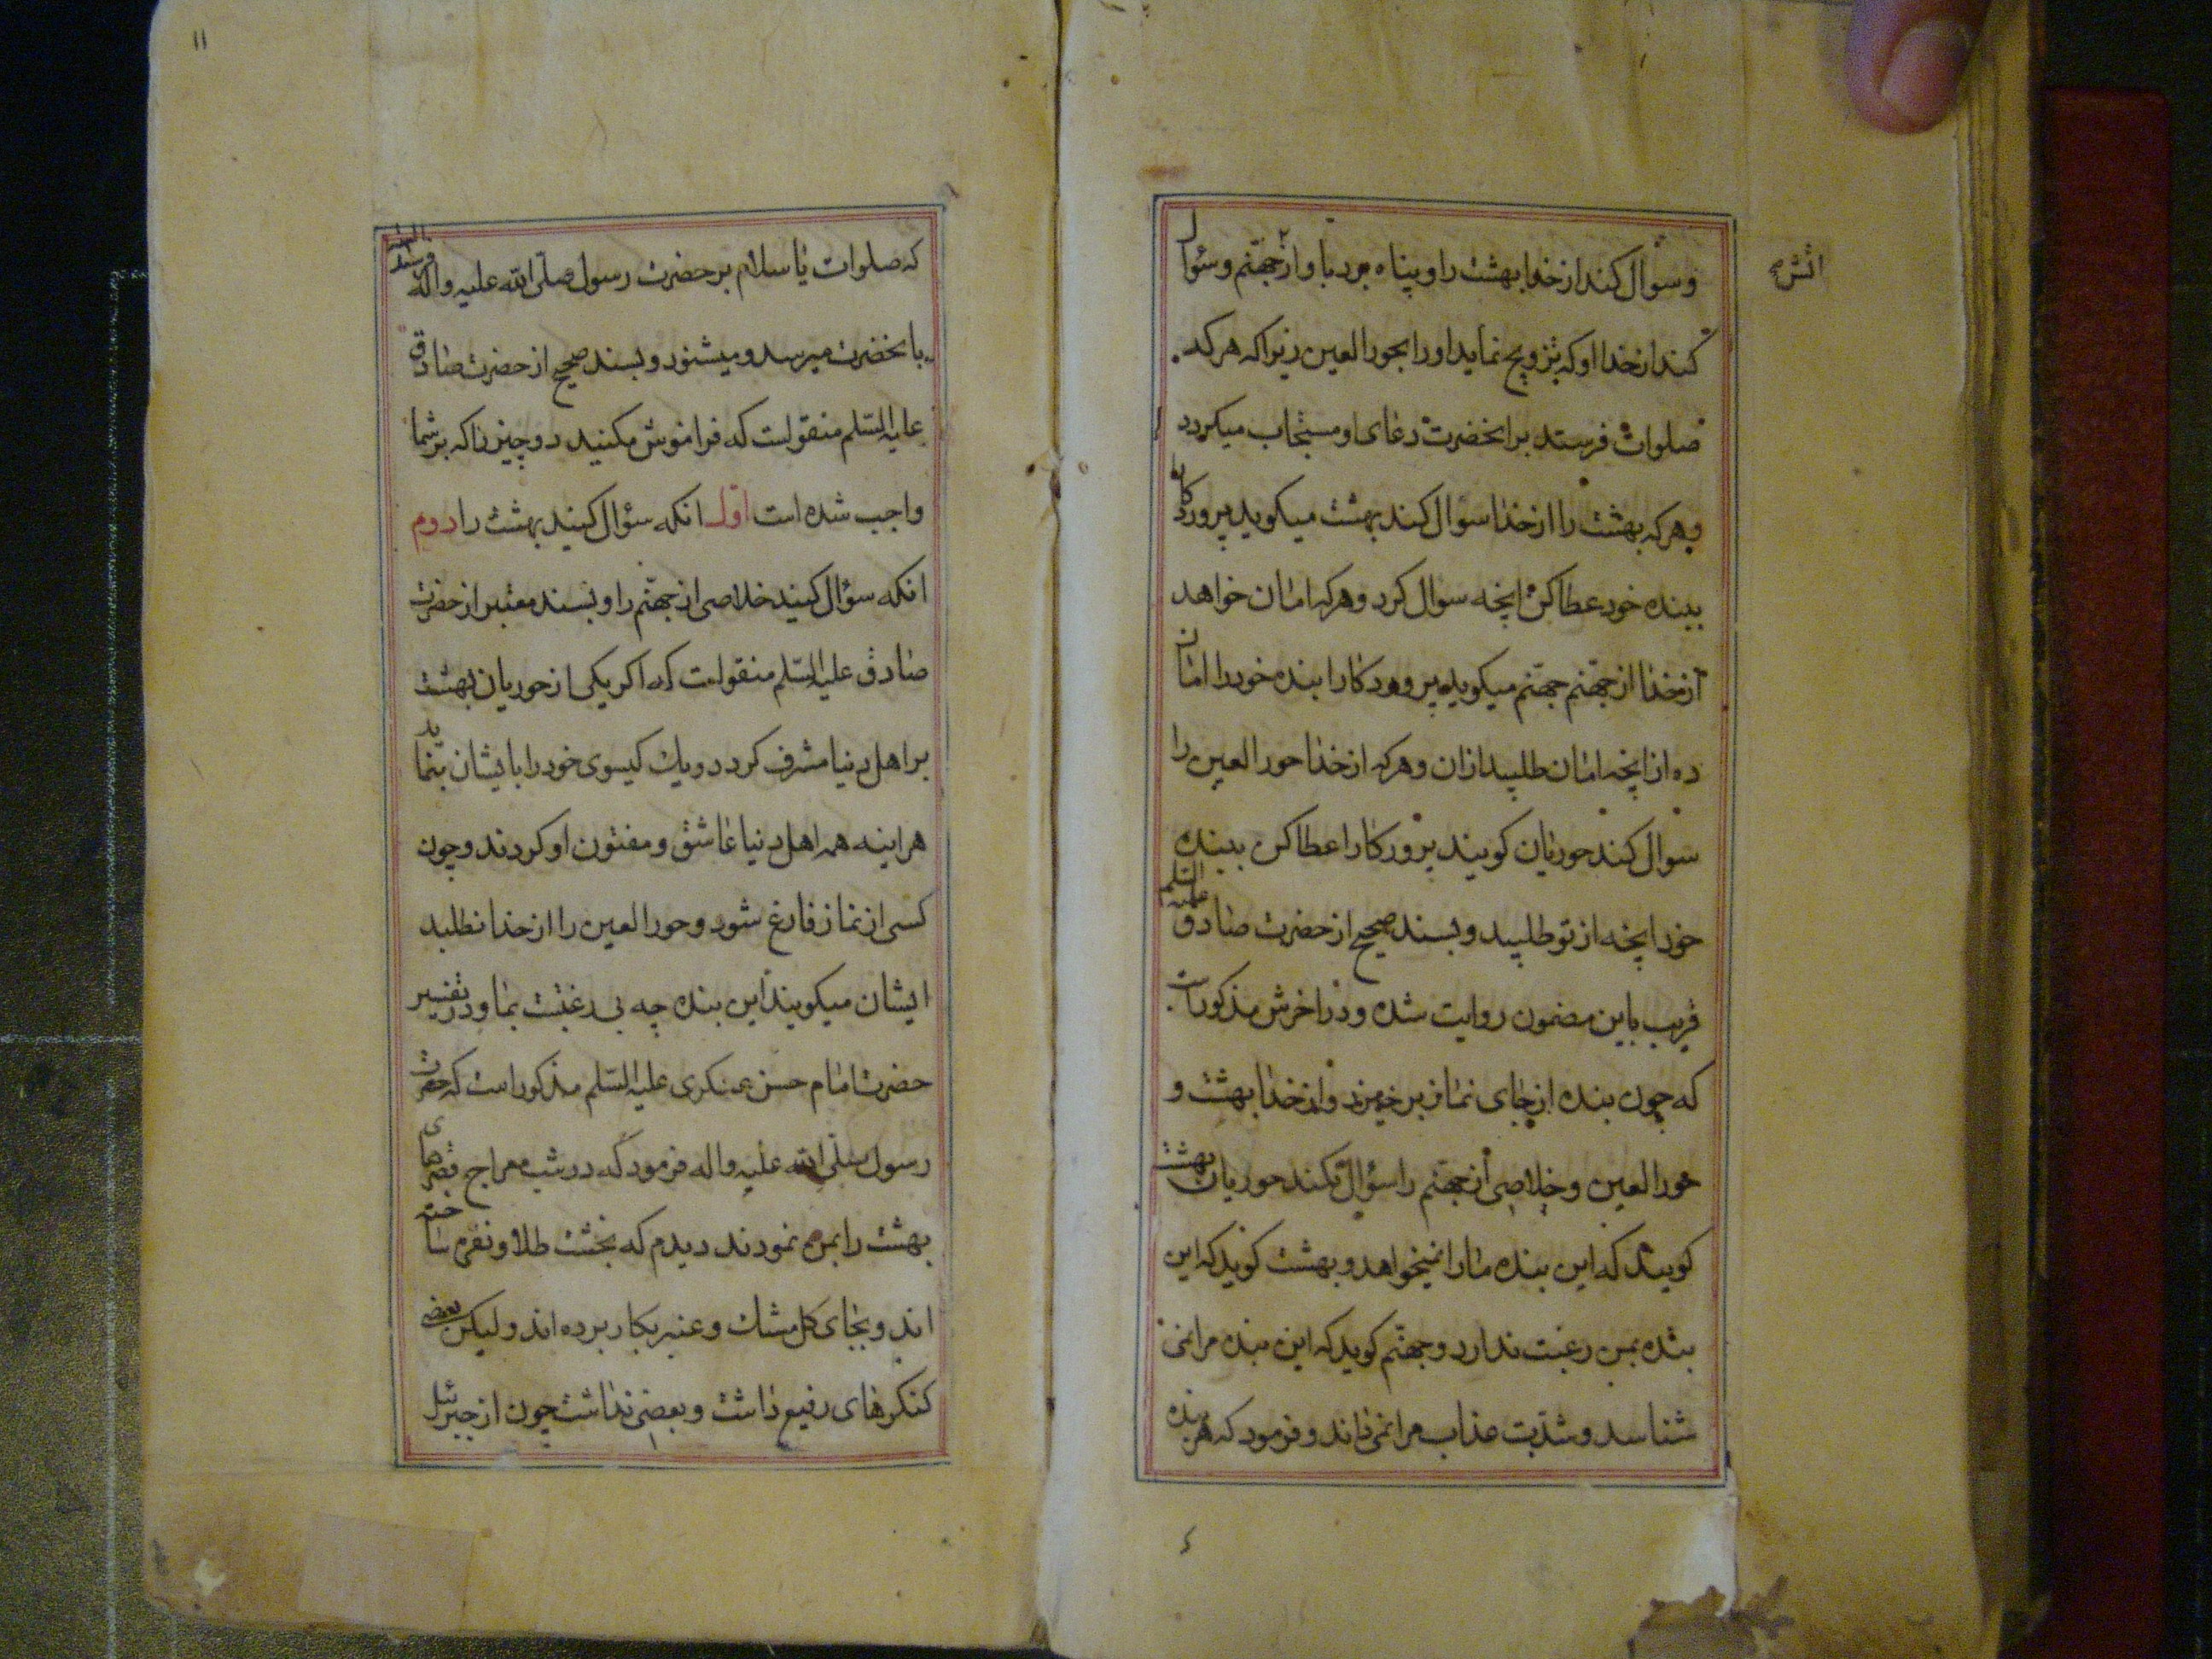 وسوال کند از خدا بهشت را و پناه برد باو از جهنم وسئوال
اتش
کند از خدا او که تزویج نماید او را بحور العین زیرا که هر که
صلوات فرستد بر انحضرت دعای او مستجاب میکردد
وهر که بهشت را از خدا سوال کند بهشت میکوید پروردکارا
ببنده خود عطا کن انچه سوال کرد وهر که امان خواهد
از خدا از جهنم جهنم میکوید پروردکارا بنده خود را امان
ده از انچه امان طلبید ازان وهر که از خدا حور العین را
سوال کند حوریان کویند پرورکارا عطا کن ببنده
خود انچه از تو طلبید و بسند صحیح از حضرت صادق علیه السلم
قریب باین مضمون روایت شده و در اخرش مذکور است
که چون بنده از جای نماز برخیزد و از خدا بهشت و
حور العین و خلاصی از جهنم را سؤال نکند حوریان بهشت
کویند که این بنده ما را نمیخواهد و بهشت کوید که این
بنده بمن رغبت ندارد و جهنم کوید که این بنده مرا نمی
شناسد و شدت عذاب مرا نمی داند و فرمود که هر بنده
۱۱
که صلوات یا سلام بر حضرت رسول صلی الله علیه واله فرستد
بانحضرت میرسد و میشنود و بسند صحیح از حضرت صادق
علیه السلم منقولست که فراموش مکنید دو چیز را که بر شما
واجب شده است اول انکه سؤال کنید بهشت را دوم
انکه سؤال کنید خلاصی از جهنم را و بسند معتبر از حضرت
صادق علیه السلم منقولست که اکر یکی از حوریان بهشت
بر اهل دنیا مشرف کردد و یك کیسوی خود را بایشان بنماید
هراینه همه اهل دنیا عاشق و مفتون او کردند و چون
کسی از نماز فارغ شود و حور العین را از خدا نطلبد
ایشان میکویند این بنده چه بی رغبت بما و در تفسیر
حضرت امام حسن عسکری علیه السلم مذکور است که حضرت
رسول صلی الله علیه واله فرمود که در شب معراج قصرهای
بهشت را بمن نمودند دیدم که بخشت طلا و نقره ساخته
اند و بجای کل مشك و عنبر بکار برده اند و لیکن بعضی
کنکرهای رفیع داشت و بعضی نداشت چون از جبرئیل